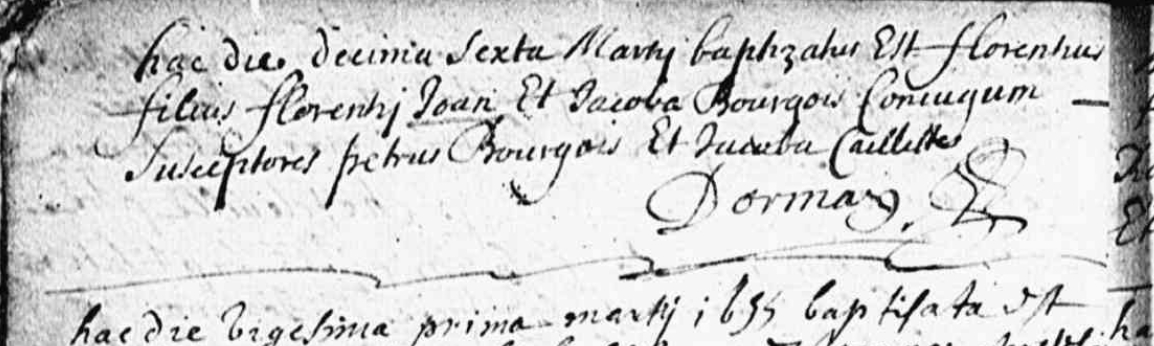 hac die decima sexta Martij baptizatus Est florentius
filius florentij Joan Et Jacoba Bourgois Coniugum
Susceptores petrus Bourgois Et Jacoba Caillettes
Dormay
hac die vigesima prima martij 1655 baptisata est